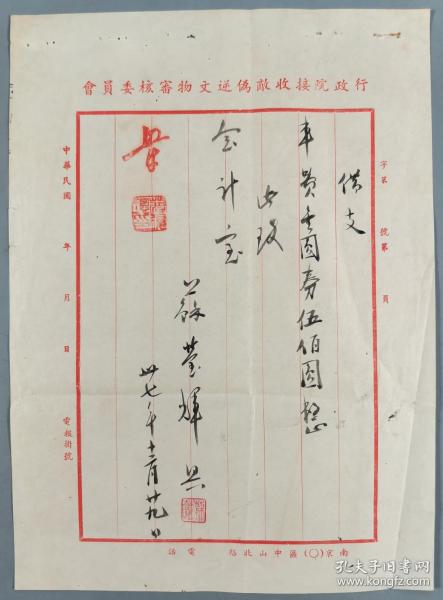 行政院接收敵偽逆文物審核委員會
字第　號第　頁
借支
車費金圓券伍佰圓整
此致
会计室
蘇瑩輝
卅七年十二月廿九日
中華民國　年　月　日　電報掛號
南京(〇)區中山北路　電話
孔夫子旧书网
www.kongfz.com